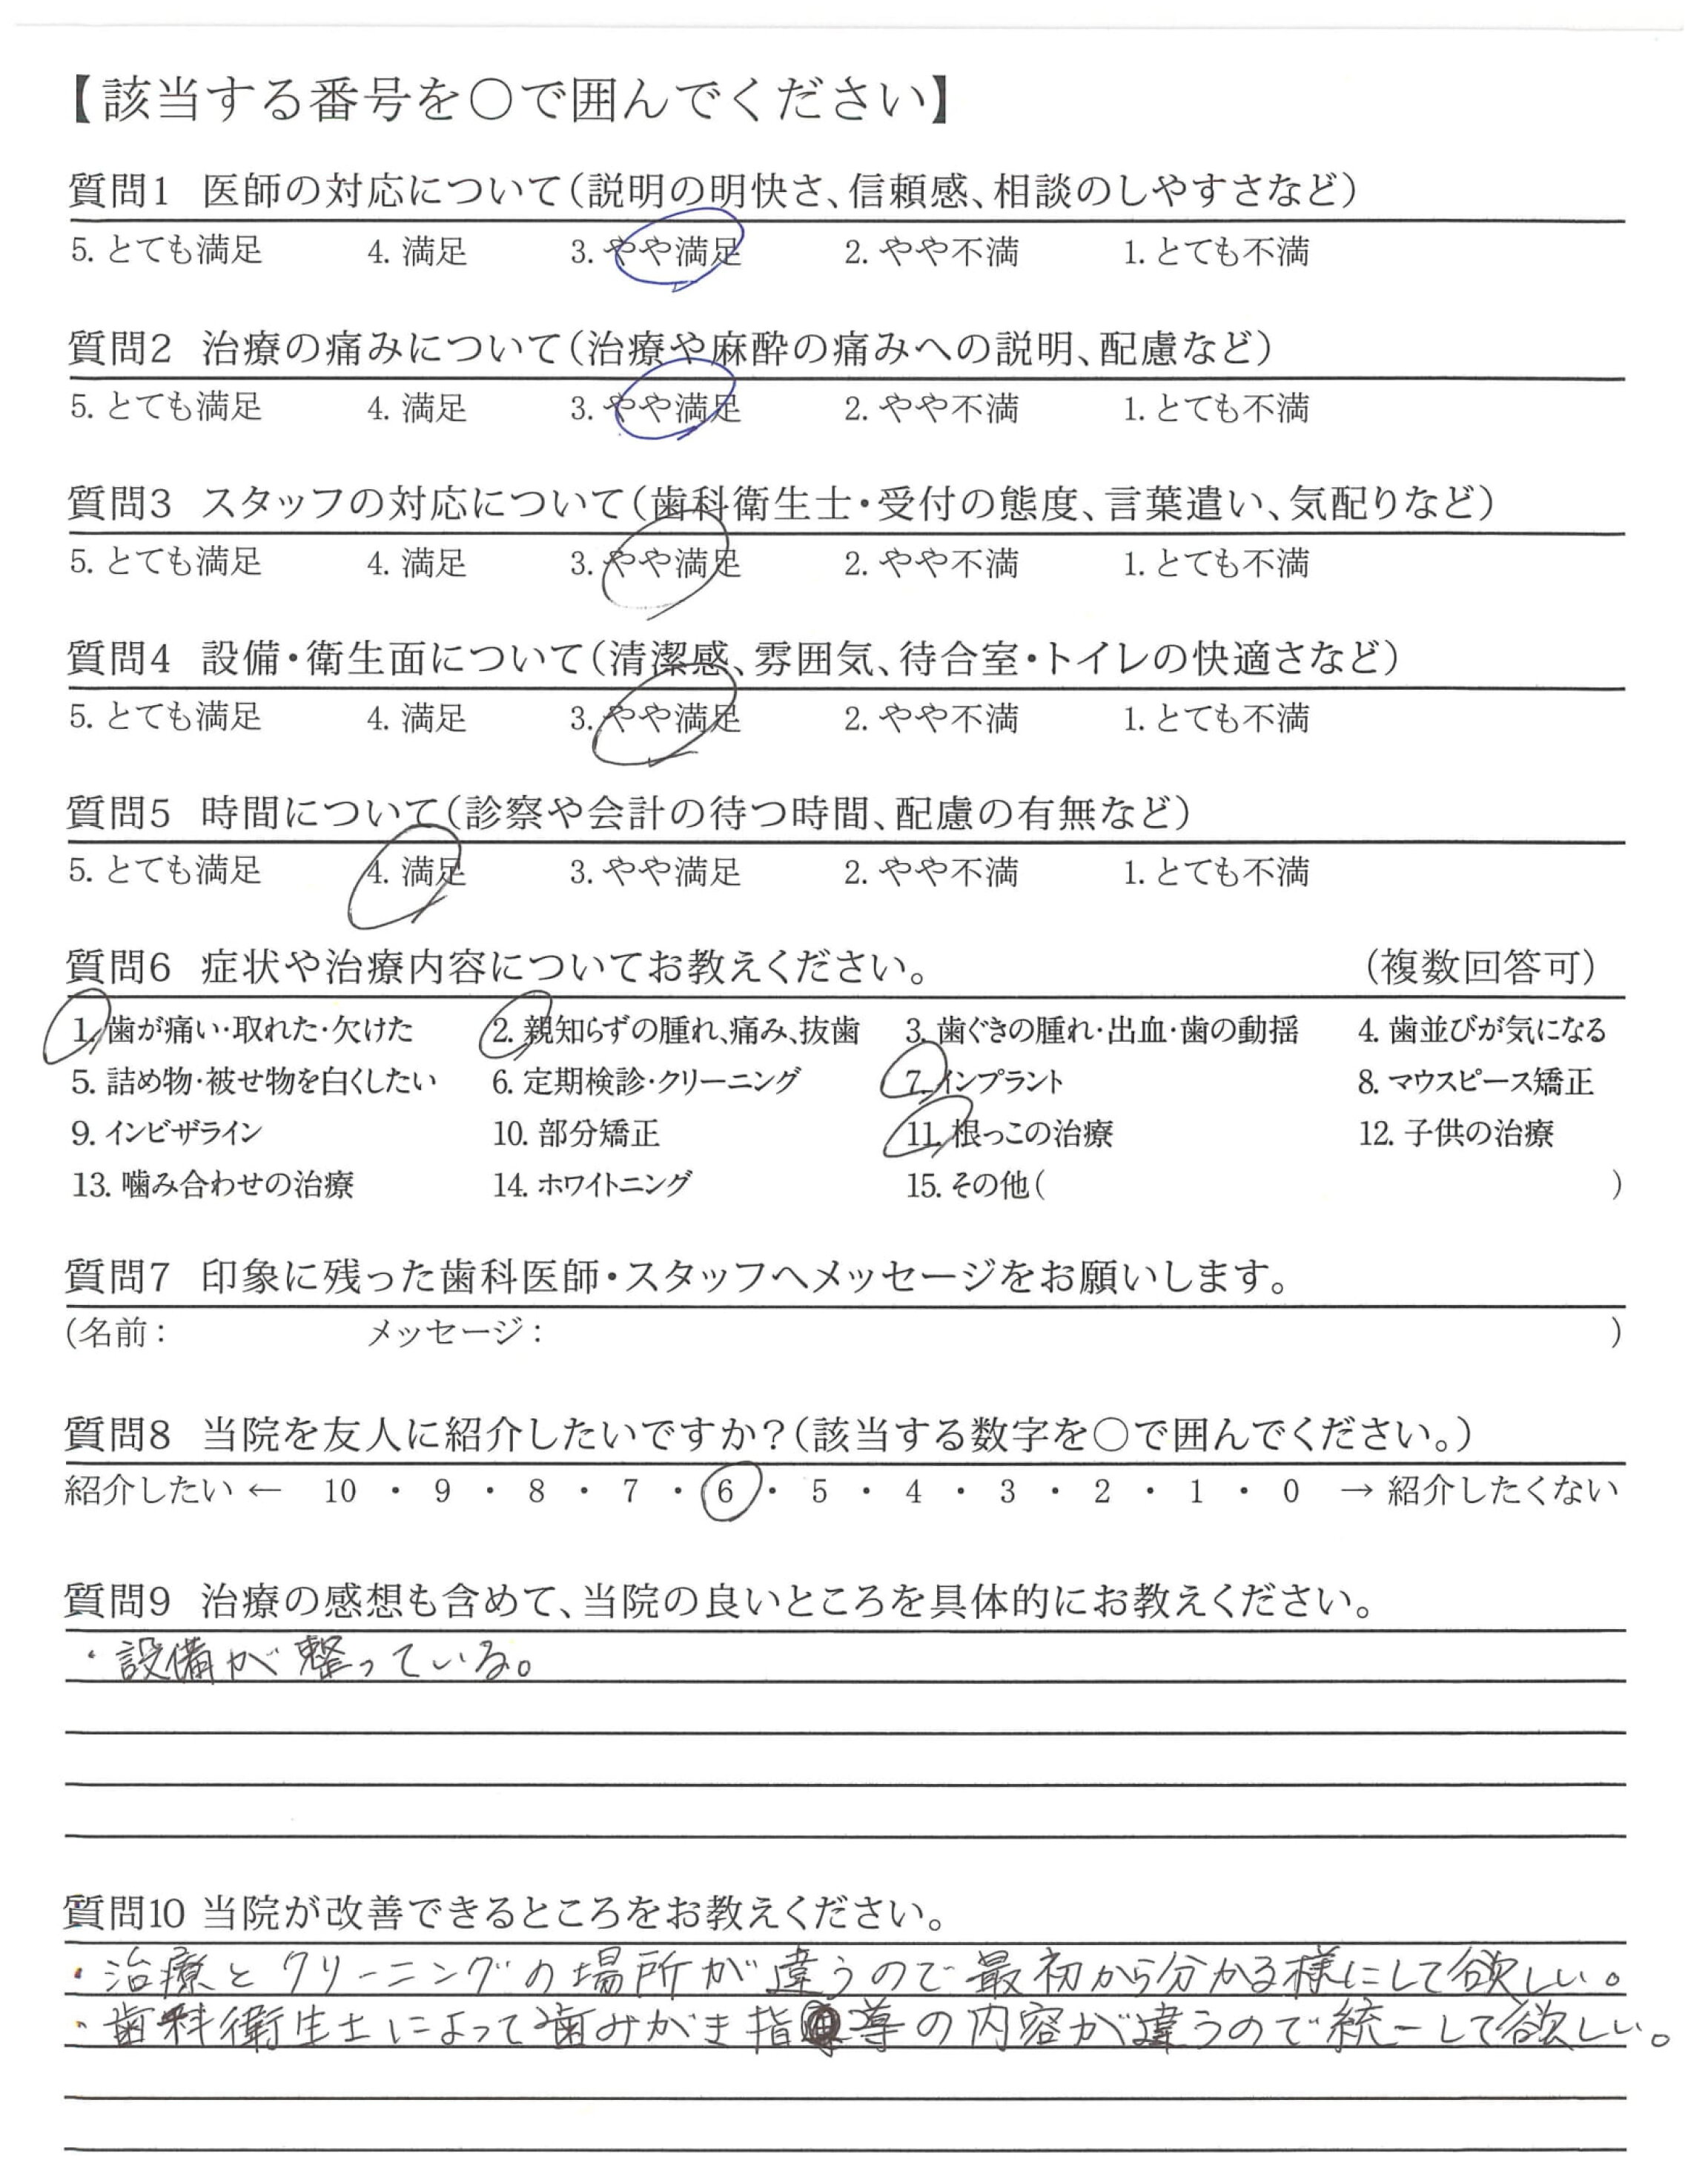 【該当する番号を○で囲んでください】
質問1 医師の対応について(説明の明快さ、信頼感、相談のしやすさなど)
5. とても満足 4. 満足 3. やや満足 2. やや不満 1. とても不満
質問2 治療の痛みについて(治療や麻酔の痛みへの説明、配慮など)
5. とても満足 4. 満足 3. やや満足 2. やや不満 1. とても不満
質問3 スタッフの対応について(歯科衛生士・受付の態度、言葉遣い、気配りなど)
5. とても満足 4. 満足 3. やや満足 2. やや不満 1. とても不満
質問4 設備・衛生面について(清潔感、雰囲気、待合室・トイレの快適さなど)
5. とても満足 4. 満足 3. やや満足 2. やや不満 1. とても不満
質問5 時間について(診察や会計の待つ時間、配慮の有無など)
5. とても満足 4. 満足 3. やや満足 2. やや不満 1. とても不満
質問6 症状や治療内容についてお教えください。 (複数回答可)
1. 歯が痛い・取れた・欠けた 2. 親知らずの腫れ、痛み、抜歯 3. 歯ぐきの腫れ・出血・歯の動揺 4. 歯並びが気になる
5. 詰め物・被せ物を白くしたい 6. 定期検診・クリーニング 7. インプラント 8. マウスピース矯正
9. インビザライン 10. 部分矯正 11. 根っこの治療 12. 子供の治療
13. 噛み合わせの治療 14. ホワイトニング 15. その他( )
質問7 印象に残った歯科医師・スタッフへメッセージをお願いします。
(名前: メッセージ: )
質問8 当院を友人に紹介したいですか?(該当する数字を○で囲んでください。)
紹介したい ← 10 ・ 9 ・ 8 ・ 7 ・ 6 ・ 5 ・ 4 ・ 3 ・ 2 ・ 1 ・ 0 → 紹介したくない
質問9 治療の感想も含めて、当院の良いところを具体的にお教えください。
・設備が整っている。
質問10 当院が改善できるところをお教えください。
・治療とクリーニングの場所が違うので最初から分かる様にして欲しい。
・歯科衛生士によって歯みがき指導の内容が違うので統一して欲しい。